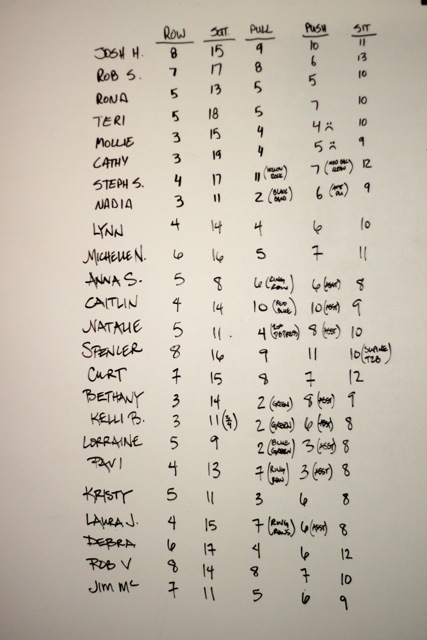 ROW SQT PULL PUSH SIT
JOSH H. 8 15 9 10 11
ROB S. 7 17 8 6 13
RONA 5 13 5 5 10
TERI 5 18 5 7 10
MOLLIE 3 15 4 4 10
CATHY 3 19 4 5 9
STEPH S. 4 17 11 7 12
NADIA 3 11 2 (BLACK BAND) 6 9
LYNN 4 14 4 6 10
MICHELLE N. 6 16 5 7 11
ANNA S. 5 8 6 (RING ROWS) 6 (ASST) 8
CAITLIN 4 14 10 10 (ASST) 9
NATALIE 5 11 4 8 (ASST) 10
SPENCER 8 16 9 11 10 (SUPINE T2B)
CURT 7 15 8 7 12
BETHANY 3 14 2 (GREEN) 8 (ASST) 9
KELLI B. 3 11 2 (GREEN) 6 (ASST) 8
LORRAINE 5 9 2 (BLUE GREEN) 3 (ASST) 8
PAVI 4 13 7 (RING ROW) 3 (ASST) 8
KRISTY 5 11 3 6 8
LAURA J. 4 15 7 (RING ROWS) 6 (ASST) 8
DEBRA 6 17 4 6 12
ROB V 8 14 8 7 10
JIM MC 7 11 5 6 9